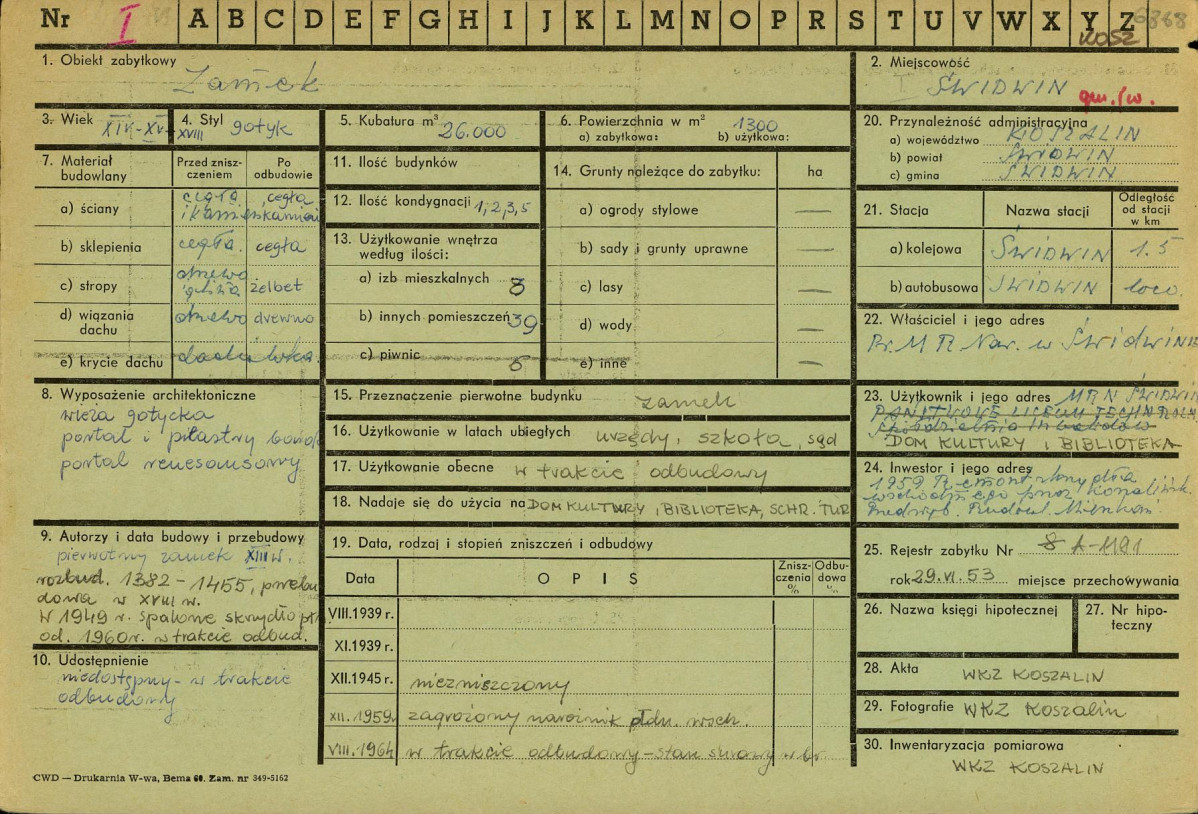 Nr I A B C D E F G H I J K L M N O P R S T U V W X Y Z 6368
KOSZ
1. Obiekt zabytkowy
Zamek
2. Miejscowość
ŚWIDWIN
gm. Św.
3. Wiek XIV-XV
XVIII
4. Styl gotyk
5. Kubatura m³ 26.000
6. Powierzchnia w m² 1300
a) zabytkowa: b) użytkowa:
20. Przynależność administracyjna
a) województwo KOSZALIN
b) powiat ŚWIDWIN
c) gmina ŚWIDWIN
7. Materiał budowlany
Przed zniszczeniem
Po odbudowie
a) ściany cegła i kamień cegła kamień
b) sklepienia cegła. cegła
c) stropy drzewo żelbet
d) wiązania dachu drzewo drewno
e) krycie dachu dachówka.
11. Ilość budynków
12. Ilość kondygnacji 1,2,3,5
13. Użytkowanie wnętrza według ilości:
a) izb mieszkalnych
b) innych pomieszczeń 39
c) piwnic
14. Grunty należące do zabytku: ha
a) ogrody stylowe —
b) sady i grunty uprawne —
c) lasy —
d) wody —
e) inne —
21. Stacja
Nazwa stacji
Odległość od stacji w km
a) kolejowa ŚWIDWIN 1.5
b) autobusowa ŚWIDWIN loco.
22. Właściciel i jego adres
Pr. M R. Nar. w Świdwinie
8. Wyposażenie architektoniczne
wieża gotycka
portal i pilastry barok
portal renesansowy
15. Przeznaczenie pierwotne budynku zamek
16. Użytkowanie w latach ubiegłych urzędy, szkoła, sąd
17. Użytkowanie obecne w trakcie odbudowy
18. Nadaje się do użycia na DOM KULTURY, BIBLIOTEKA, SCHR. TUR
23. Użytkownik i jego adres MRN ŚWIDWIN
PAŃSTWOWE LICEUM TECHN.
DOM KULTURY i BIBLIOTEKA
24. Inwestor i jego adres
1959 R. remont
wschodniego przez Koszalińsk.
Przedsięb. Budowl.
9. Autorzy i data budowy i przebudowy
pierwotny zamek XIII w.
rozbud. 1382 - 1455, przebu
dowa w XVIII w.
W 1949 r. spalone skrzydło
od. 1960r. w trakcie odbud.
19. Data, rodzaj i stopień zniszczeń i odbudowy
Data OPIS Zniszczenia % Odbudowa %
VIII.1939 r.
XI.1939 r.
XII.1945 r. niezniszczony
XII.1959r. zagrożony narożnik płdn. wsch.
VIII.1964 w trakcie odbudowy - stan surowy w br.
10. Udostępnienie
niedostępny - w trakcie
odbudowy
25. Rejestr zabytku Nr A-1191
rok 29.VI.53 miejsce przechowywania
26. Nazwa księgi hipotecznej
27. Nr hipoteczny
28. Akta WKZ KOSZALIN
29. Fotografie WKZ Koszalin
30. Inwentaryzacja pomiarowa
WKZ KOSZALIN
CWD — Drukarnia W-wa, Bema 60. Zam. nr 349-5162